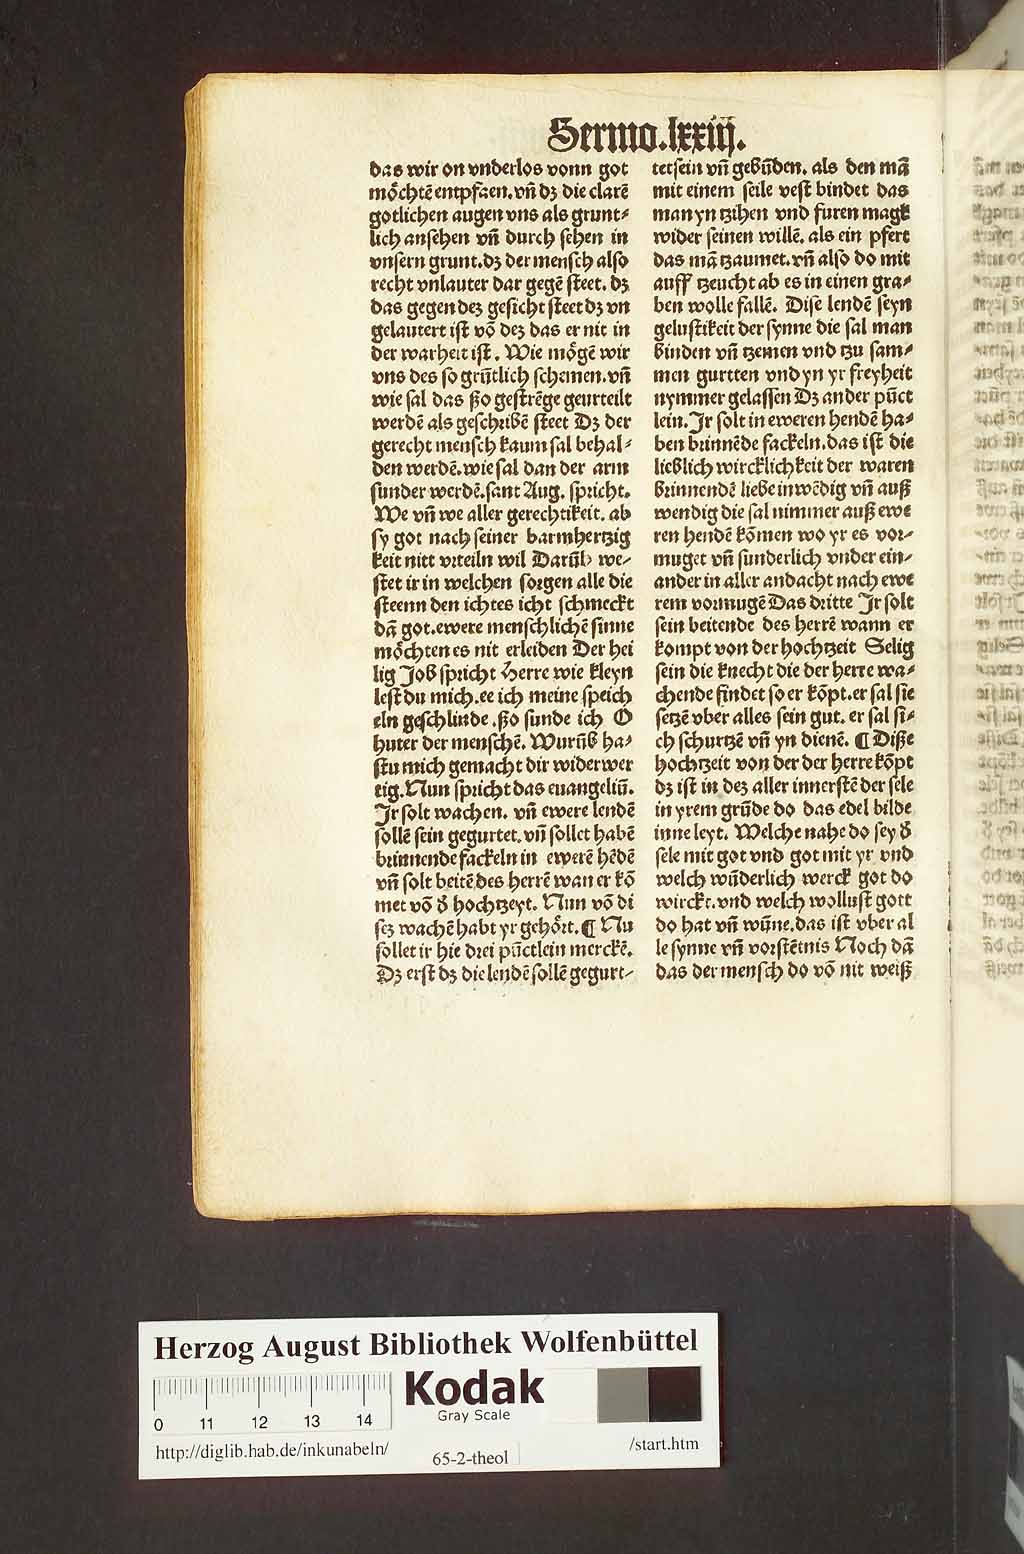 Sermo.lxxiij.
das wir on vnderlos vonn got
mőchtē entpfaen.vn̄ dʒ die clarē
gotlichen augen vns als grunt⸗
lich ansehen vn̄ durch sehen in
vnsern grunt.dʒ der mensch also
recht vnlauter dar gegē steet. dʒ
das gegen deʒ gesicht steet dʒ vn
gelautert ist vō deʒ das er nit in
der warheit ist. Wie mőgē wir
vns des so grūtlich schemen.vn̄
wie sal das ßo gestrēge geurteilt
werdē als geschribē steet Dʒ der
gerecht mensch kaum sal behal⸗
den werdē.wie sal dan der arm
sunder werdē.sant Aug. spricht.
We vn̄ we aller gerechtikeit. ab
sy got nach seiner barmhertzig
keit nitt vrteiln wil Darūb we⸗
stet ir in welchen sorgen alle die
steenn den ichtes icht schmeckt
dā got.ewere menschlichē sinne
mőchten es nit erleiden Der hei
lig Job spricht Herre wie kleyn
lest du mich.ee ich meine speich
eln geschlinde .ßo sunde ich O
huter der menschē. Wurūb ha⸗
stu mich gemacht dir widerwer
tig.Nun spricht das euangeliū.
Jr solt wachen. vn̄ ewere lendē
sollē sein gegurtet.vn̄ sollet habē
brinnende fackeln in ewerē hēdē
vn̄ solt beitē des herrē wan er kō
met vō d̕ hochtzeyt. Nun vō di
seʒ wachē habt yr gehőrt.¶ Nu
sollet ir hie drei pūctlein merckē.
Dʒ erst dʒ die lendē sollē gegurt⸗
tetsein vn̄ gebūden. als den mā
mit einem seile vest bindet das
man yn tzihen vnd furen magk
wider seinen willē. als ein pfert
das mā tzaumet.vn̄ also do mit
auff tzeucht ab es in einen gra⸗
ben wolle fallē. Dise lendē seyn
gelustikeit der synne die sal man
binden vn̄ tzemen vnd tzu sam⸗
men gurtten vnd yn yr freyheit
nymmer gelassen Dʒ ander pūct
lein.Jr solt in eweren hendē ha⸗
ben brinnēde fackeln.das ist die
lieblich wircklichkeit der waren
brinnendē liebe inwēdig vn̄ auß
wendig die sal nimmer auß ewe
ren hendē kōmen wo yr es vor⸗
muget vn̄ sunderlich vnder ein⸗
ander in aller andacht nach ewe
rem vormugē Das dritte Jr solt
sein beitende des herrē wann er
kompt von der hochtzeit Selig
sein die knecht die der herre wa⸗
chende findet so er kōpt.er sal sie
setzē vber alles sein gut. er sal si⸗
ch schurtzē vn̄ yn dienē. ¶ Diße
hochtzeit von der der herre kōpt
dʒ ist in deʒ aller innerstē der sele
in yrem grūde do das edel bilde
inne leyt. Welche nahe do sey d̕
sele mit got vnd got mit yr vnd
welch wūderlich werck got do
wirckt.vnd welch wollust gott
do hat vn̄ wūne.das ist vber al
le synne vn̄ vorstētnis Noch dā
das der mensch do vō nit weiß
Herzog August Bibliothek Wolfenbüttel
Kodak
Gray Scale
0 11 12 13 14
http://diglib.hab.de/inkunabeln/
65-2-theol
/start.htm